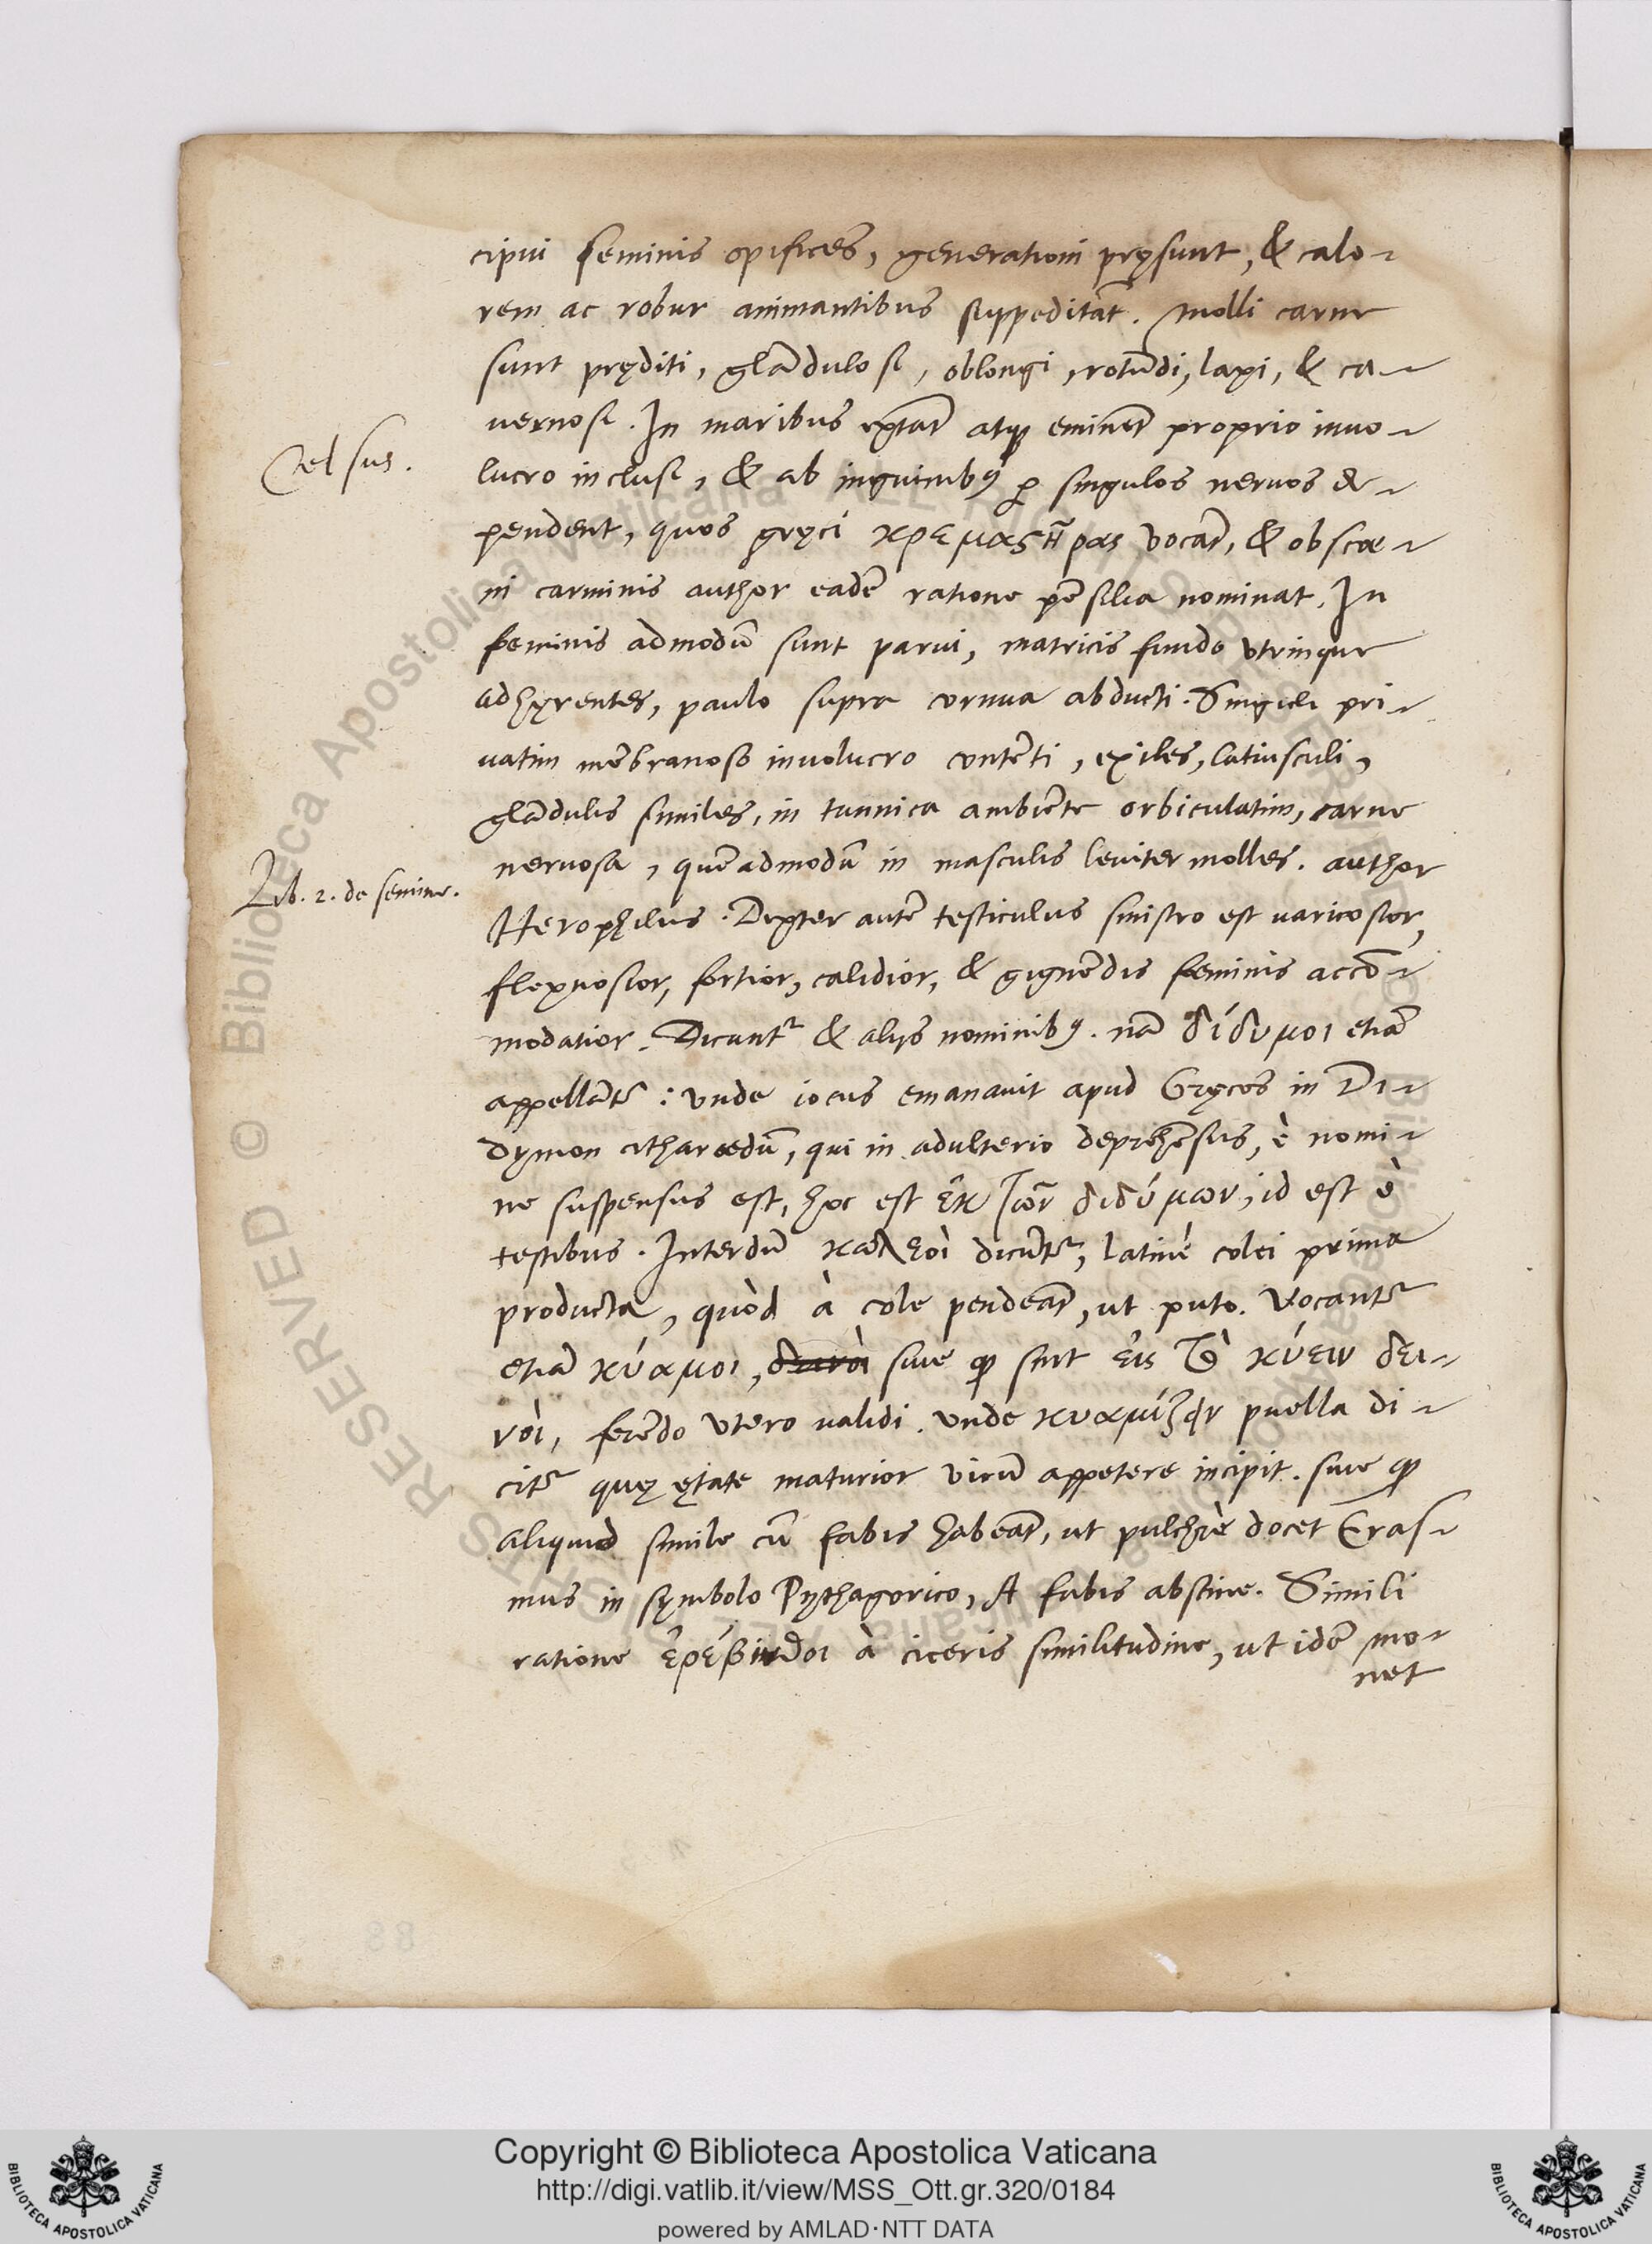 cipui seminis opifices, generationi pręsunt, & calo-
rem ac robur animantibus suppeditāt. Molli carne
sunt pręditi, glādulosi, oblongi, rotūdi, laxi, & ca-
uernosi. In maribus extāt atq; eminēt proprio inuo-
Celsus.
lucro inclusi, & ab inguinibꝰ ꝑ singulos neruos de-
pendent, quos gręci κρεμαϛῆρας vocāt, & obscœ-
ni carminis author eadē ratione pēsilia nominat. In
feminis admodū sunt parui, matricis fundo vtrinque
adhęrentes, paulo supra cornua abducti. Singuli pri-
uatim mēbranoso inuolucro contēti, exiles, latiusculi,
glādulis similes, in tunnica ambiēte orbiculatim, carne
neruosa, quēadmodū in masculis leuiter molles. author
Lib. 2. de semine.
Herophilus. Dexter autē testiculus sinistro est uaricosior,
flexuosior, fortior, calidior, & gignēdis feminis accō-
modatior. Dicunt᷑ & alijs nominibꝰ. nā δίδυμοι etiā
appellāt᷑: vnde iocus emanauit apud Gręcos in Di-
dymon citharœdū, qui in adulterio deprehēsus, è nomi-
ne suspensus est, hoc est ἐκ τῶν διδύμων, id est è
testibus. Interdū κωλεοὶ dicūt᷑, latinè colei prima
producta, quòd à cole pendeāt, ut puto. Vocant᷑
etiā κύαμοι, siue ꝙ sint εἰς τὸ κύειν δει-
νοὶ, ferēdo vtero ualidi. vnde κυαμίζην puella di-
cit᷑ quę ętate maturior virū appetere incipit. siue ꝙ
aliquid simile cū fabis habeāt, ut pulchrè docet Eras-
mus in symbolo Pythagorico, A fabis abstine. Simili
ratione ἐρέβινθοι à ciceris similitudine, ut idē mo-
net
RESERVED © Biblioteca Apostolica Vaticana
Copyright © Biblioteca Apostolica Vaticana
http://digi.vatlib.it/view/MSS_Ott.gr.320/0184
powered by AMLAD·NTT DATA
BIBLIOTECA APOSTOLICA VATICANA
BIBLIOTECA APOSTOLICA VATICANA